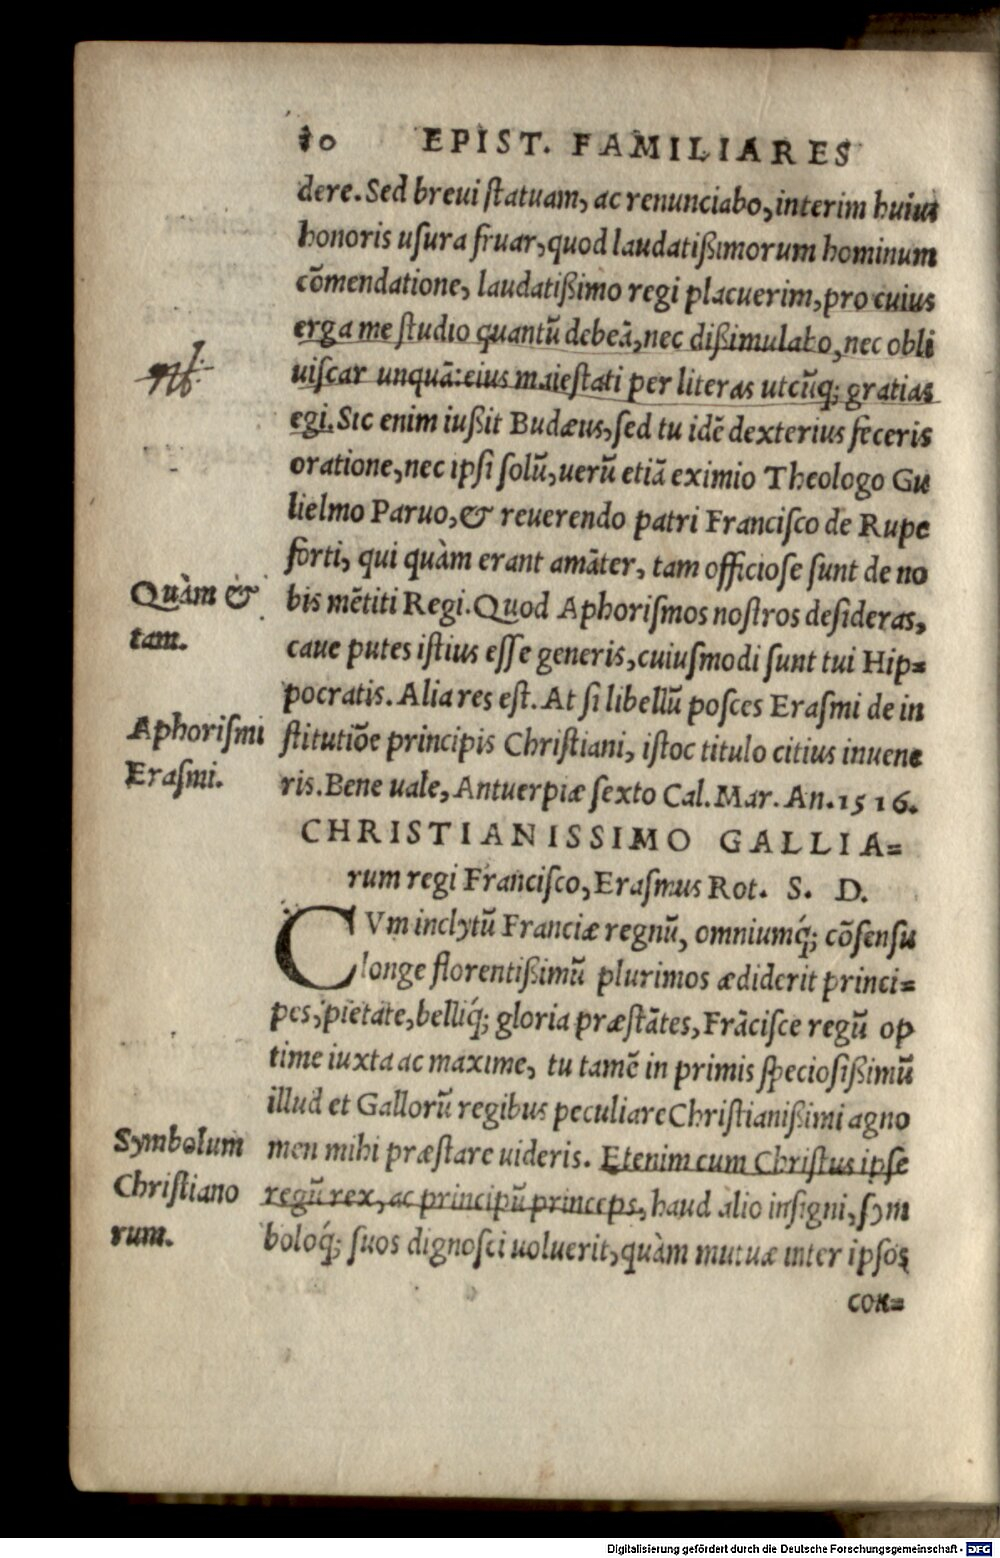 10 EPIST. FAMILIARES
dere. Sed breui ſtatuam, ac renunciabo, interim huius
honoris uſura fruar, quod laudatißimorum hominum
cōmendatione, laudatißimo regi placuerim, pro cuius
erga me ſtudio quantū debeā, nec dißimulabo, nec obli
uiſcar unquā: eius maieſtati per literas utcūq; gratias
egi. Sic enim iußit Budæus, ſed tu idē dexterius feceris
oratione, nec ipſi ſolū, uerū etiā eximio Theologo Gu
lielmo Paruo, & reuerendo patri Franciſco de Rupe
forti, qui quàm erant amāter, tam officioſe ſunt de no
Quàm &
tam.
bis mētiti Regi. Quod Aphoriſmos noſtros deſideras,
caue putes iſtius eſſe generis, cuiuſmodi ſunt tui Hip=
pocratis. Alia res eſt. At ſi libellū poſces Eraſmi de in
Aphoriſmi
Eraſmi.
ſtitutiōe principis Chriſtiani, iſtoc titulo citius inuene
ris. Bene uale, Antuerpiæ ſexto Cal. Mar. An. 1516.
CHRISTIANISSIMO GALLIA=
rum regi Franciſco, Eraſmus Rot. S. D.
CVm inclytū Franciæ regnū, omniumq́; cōſenſu
longe florentißimū plurimos ædiderit princi=
pes, pietate, belliq́; gloria præſtātes, Frāciſce regū op
time iuxta ac maxime, tu tamē in primis ſpecioſißimū
illud et Gallorū regibus peculiare Chriſtianißimi agno
Symbolum
Chriſtiano
rum.
men mihi præſtare uideris. Etenim cum Chriſtus ipſe
regū rex, ac principū princeps, haud alio inſigni, ſym
boloq́; ſuos dignoſci uoluerit, quàm mutuæ inter ipſos
con=
Digitalisierung gefördert durch die Deutsche Forschungsgemeinschaft - DFG